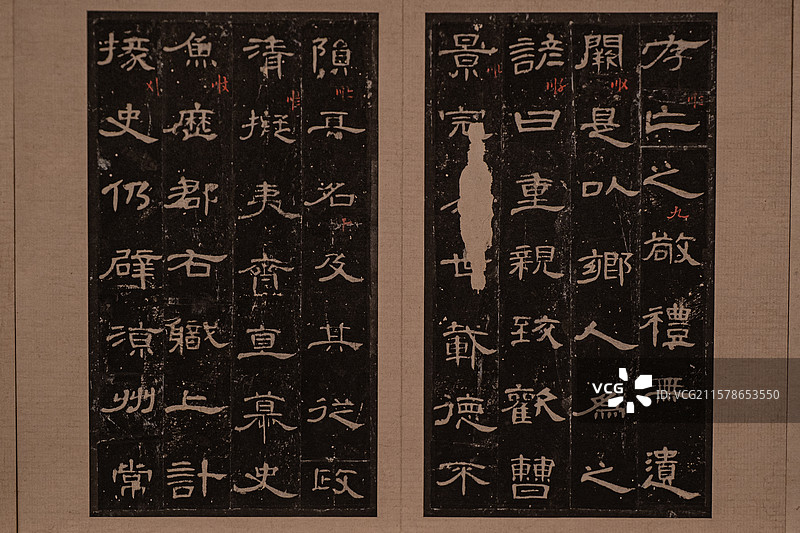 存亡之敬禮無遺
闕是以鄉人為之
諺曰重親致歡曹
景完世載德不
隕其名及其從政
清擬夷齊直慕史
魚歷郡右職上計
掾史仍辟涼州常
九
VCG
VCG211578653550